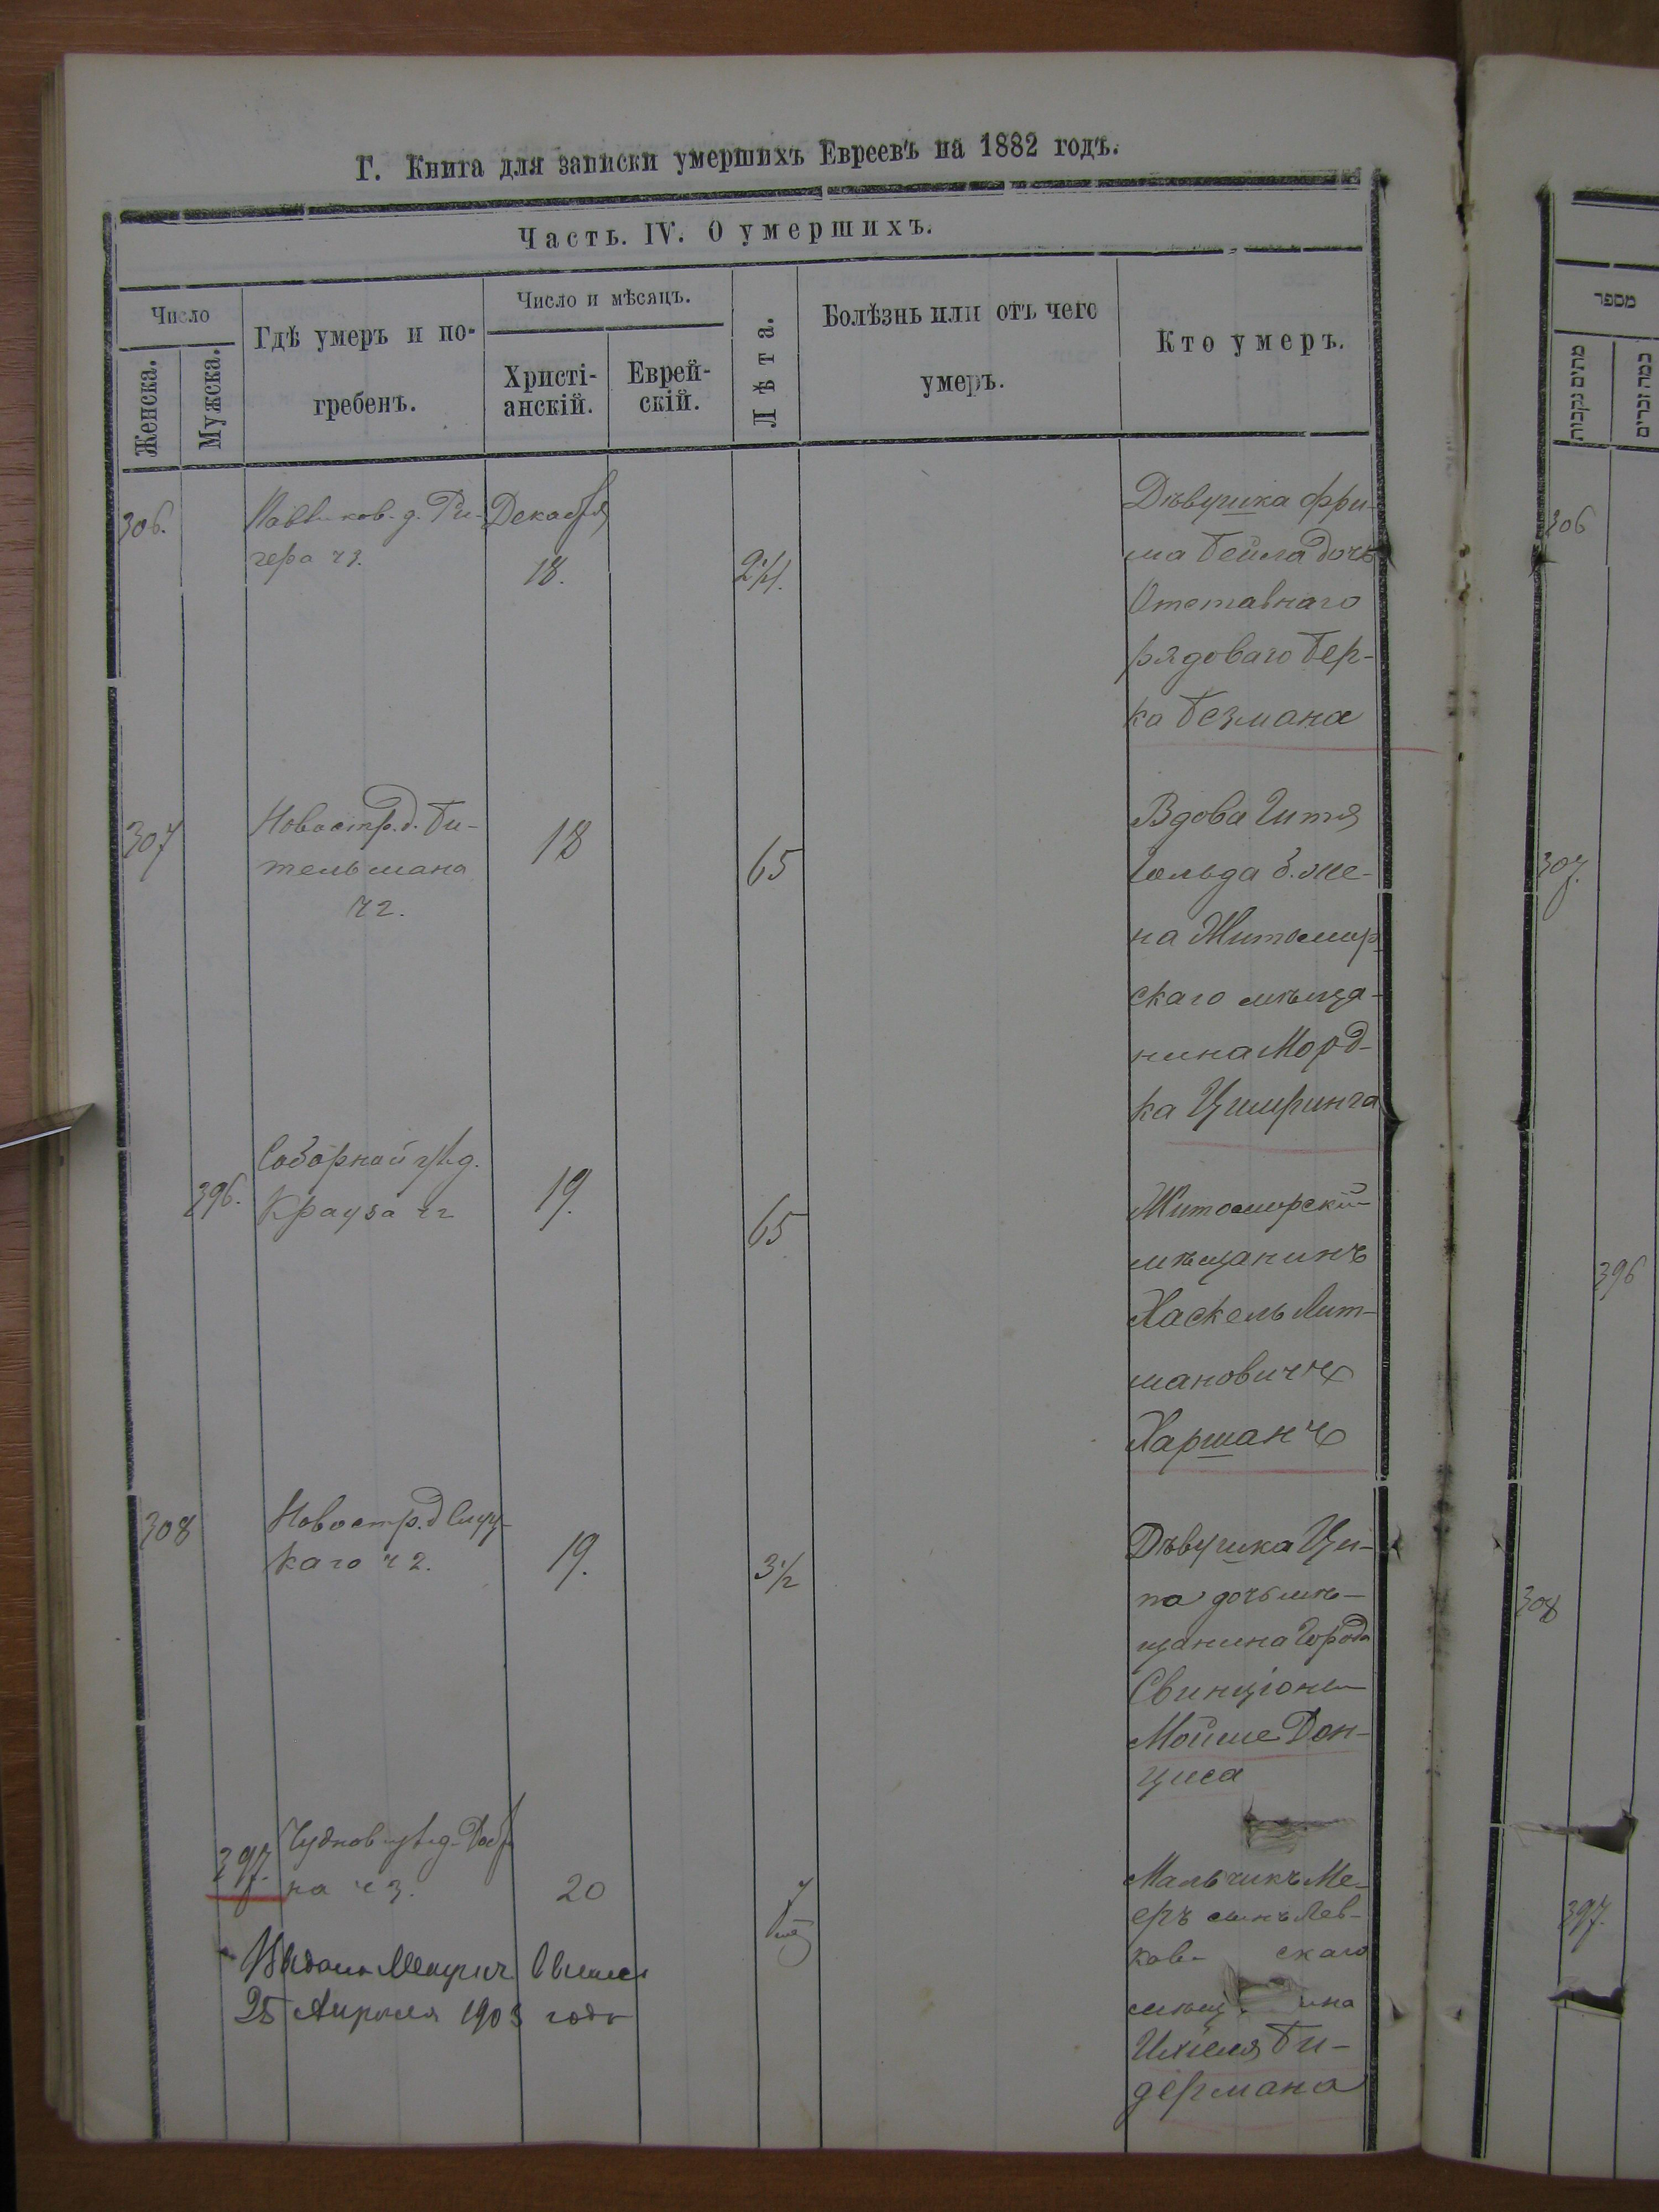 Г. Книга для записки умершихъ Евреевъ на 1882 годъ.
Часть. IV. О умершихъ.
Число
Женска.
Мужска.
Гдѣ умеръ и по-
гребенъ.
Число и мѣсяцъ.
Христі-
анскій.
Еврей-
скій.
Лѣта.
Болѣзнь или отъ чего
умеръ.
Кто умеръ.
306.
д. Ри-
гера ч 3.
Декабря
18.
2 1/2
Дѣвушка Фри-
ма Бейла дочь
Отставнаго
рядоваго Бер-
ка Безмана
307
Новостр. д. Би-
тельмана
ч 2.
18
65
Вдова Гитя
Гольда б. же-
на Житомир-
скаго мѣща-
нина Морд-
ка Цимринга
396.
Соборной ул. д.
Крауза ч 2
19.
65
Житомирскій
мѣщанинъ
Хаскель Лит-
мановичъ
Харшанъ
308
Новостр. д Слуц-
каго ч 2.
19.
3 1/2
Дѣвушка Ци-
па дочь мѣ-
щанина Города
Свинціони
Мойше Дон-
циса
397.
Чудновс ул. д.
на ч 3.
20
7
Мальчикъ Ме-
еръ сынъ Лев-
ков- скаго
мѣщ ина
Ихіеля Би-
дермана
Выдана Метрич.
25 Апрѣля 1903 года
מספר
מתים נקבות
כמה זכרים
306
307.
396
308
397.